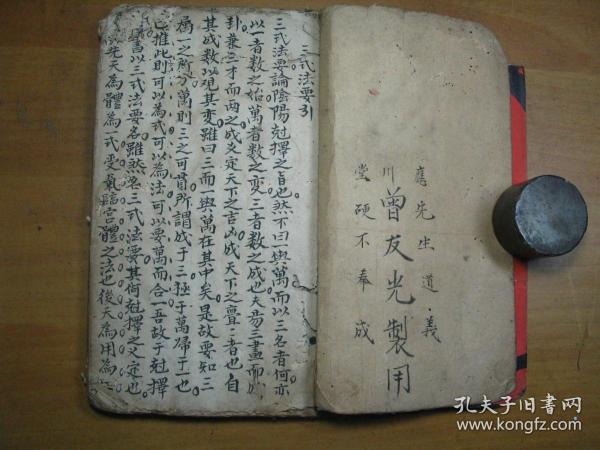 應先生道義
川曾友光製用
堂硬不奉成
三式法要引
三式法要論陰陽尅擇之旨也然不曰與萬而以三名者何亦
以一者數之始萬者數之變三者數之成也夫昜三畫而成
卦兼三才而兩之成爻定天下之吉凶成天下之亹〻者也自
其成數以觀其變雖曰三而一與萬在其中矣是故要知三
為一之所分萬則三之可貫所謂成于三極于萬歸于一也
推此則可以為式可以為法可以要萬而合一吾故于尅擇
書以三式法要名雖然名三式法要其何尅擇之乂定也
先天為體為一式爻氣臨宫體之法也後天為用為
孔夫子旧书网
www.kongfz.com